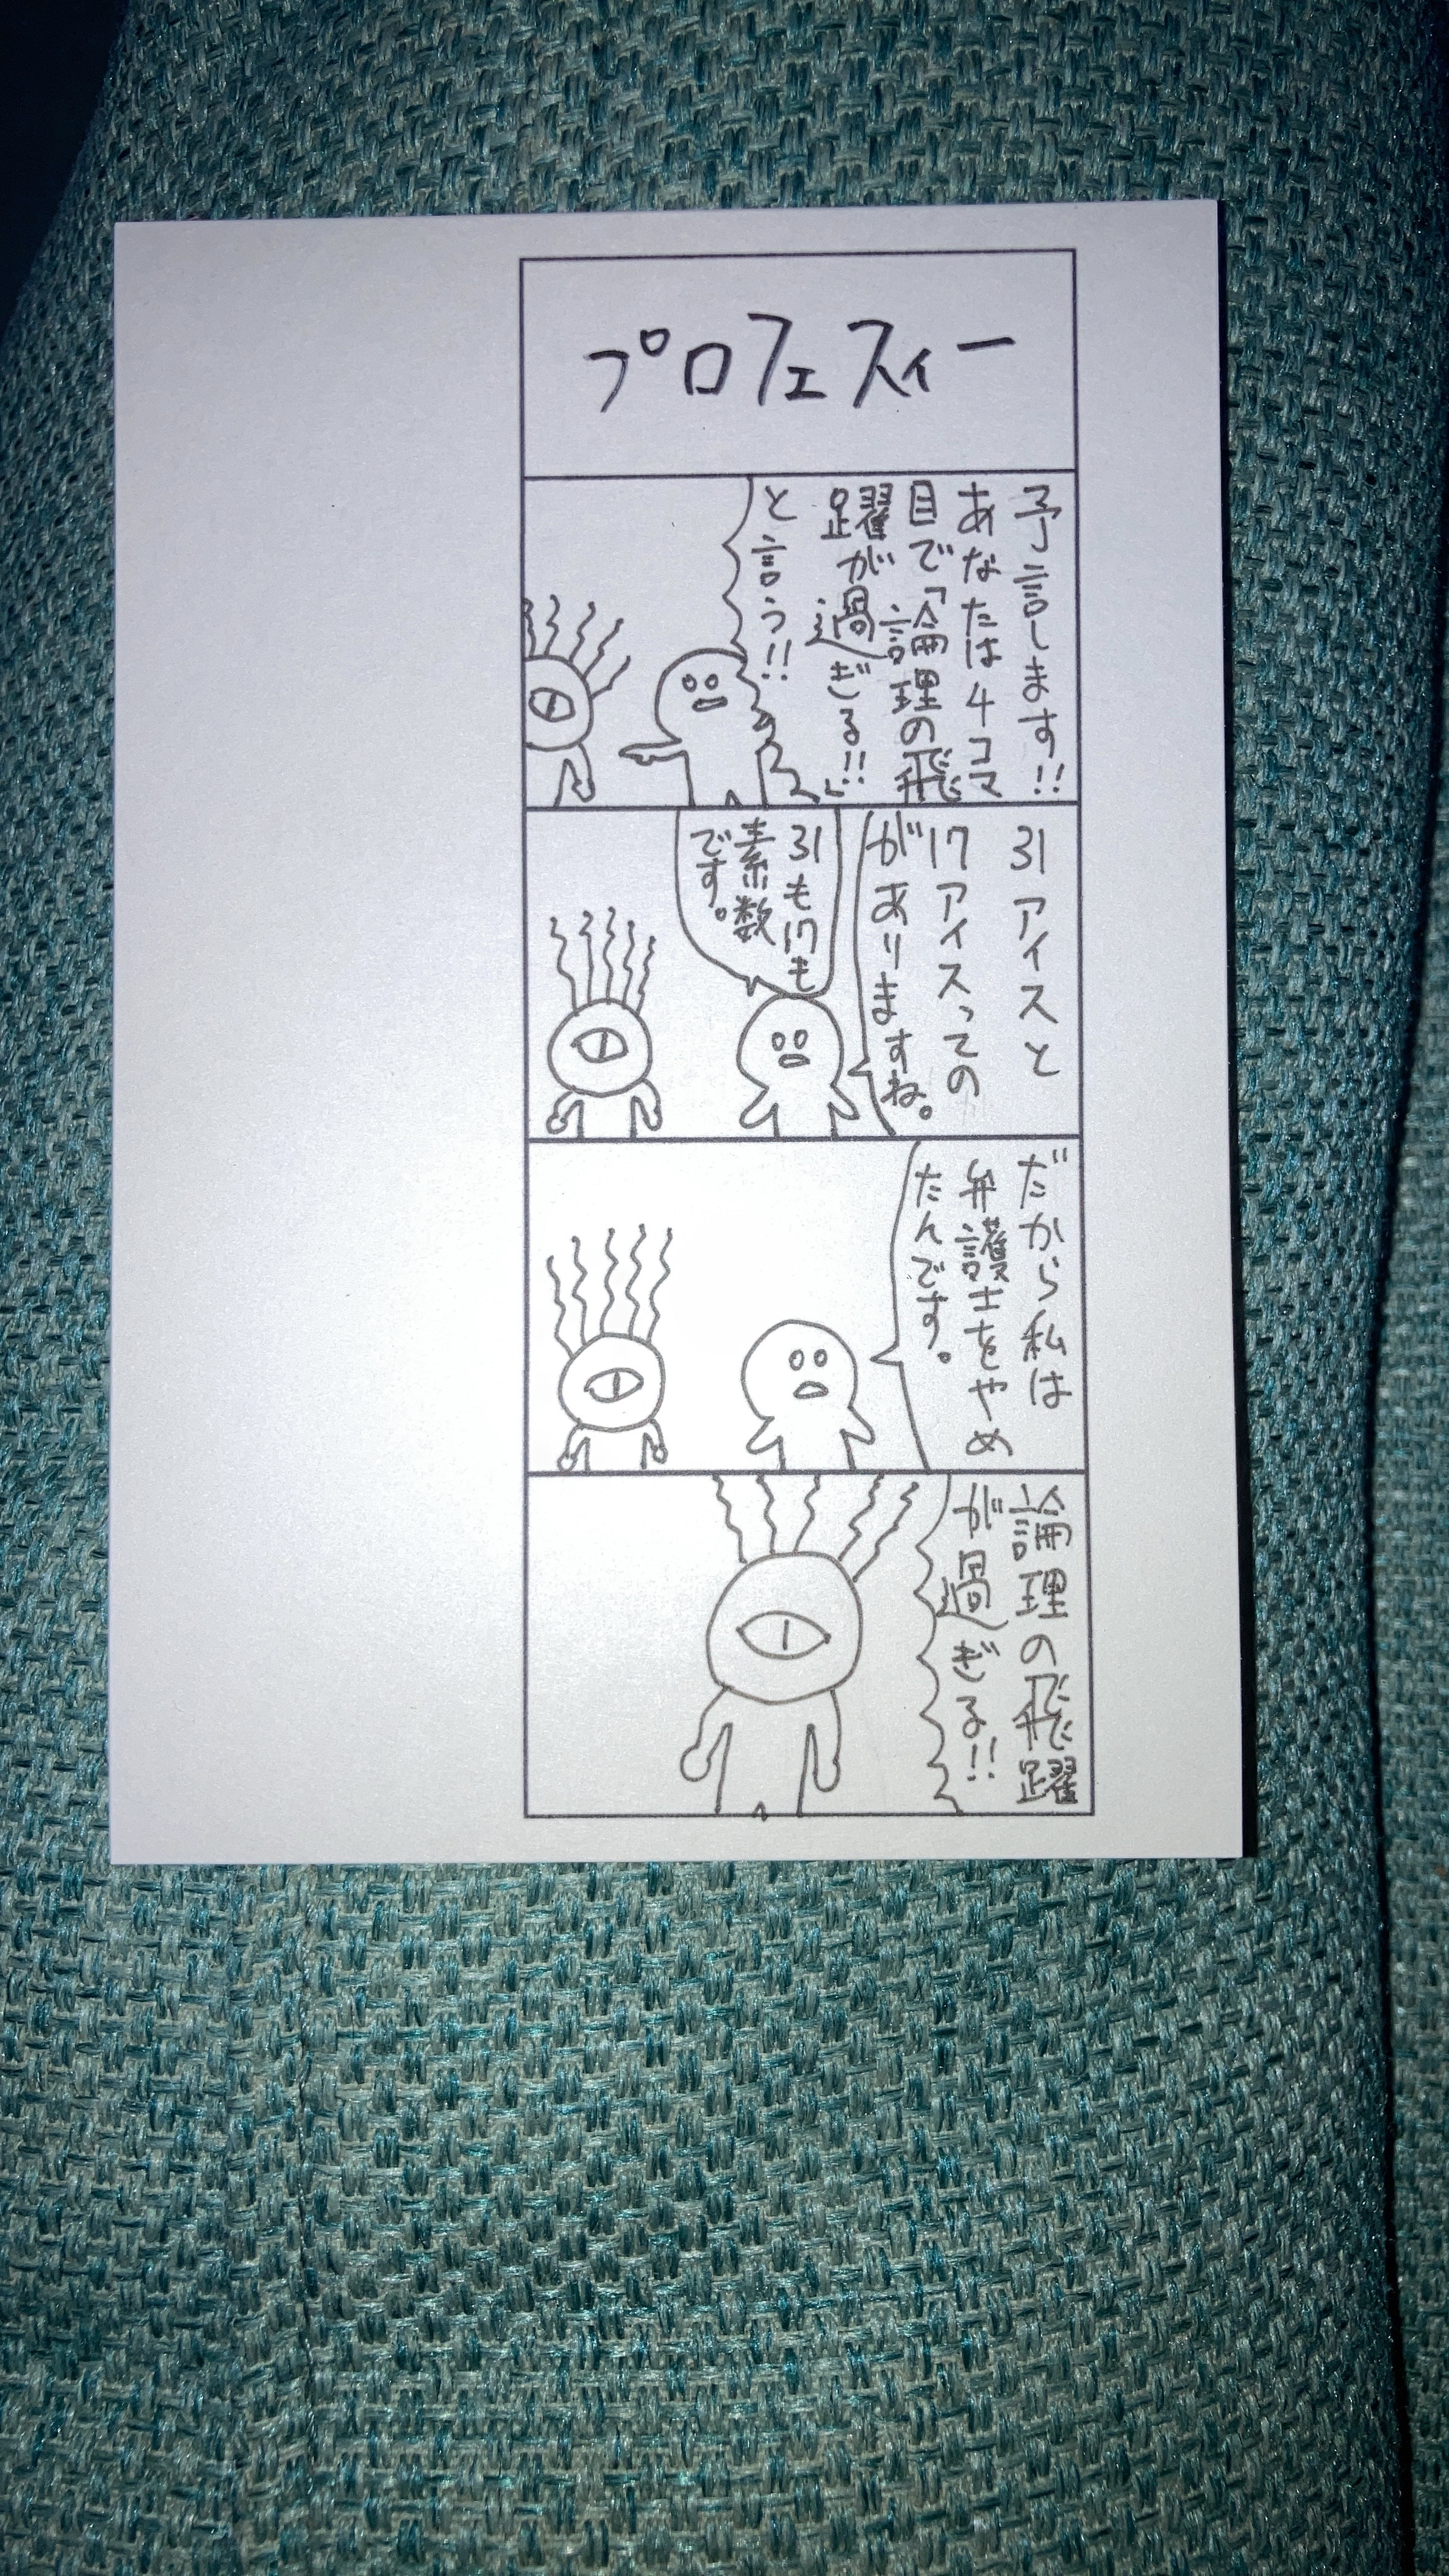 プロフェスィー
予言します!!
あなたは4コマ
目で「論理の飛
躍が過ぎる!!」
と言う!!
31アイスと
17アイスっての
がありますね。
31も17も
素数
です。
だから私は
弁護士をやめ
たんです。
論理の飛躍
が過ぎる!!